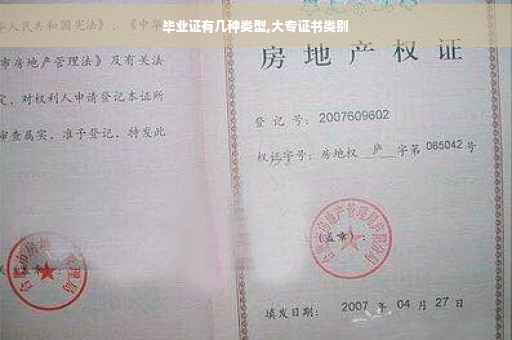 毕业证有几种类型,大专证书类别
人民共和国宪法》、《中华
市房地产管理法》及有关法
定,对权利人申请登记本证所
审查属实,准予登记,特发此
房地产权证
登记号: 2007609602
权证字号: 房地权 庐 字第 085042 号
(盖章):
填发日期: 2007 年 04 月 27 日